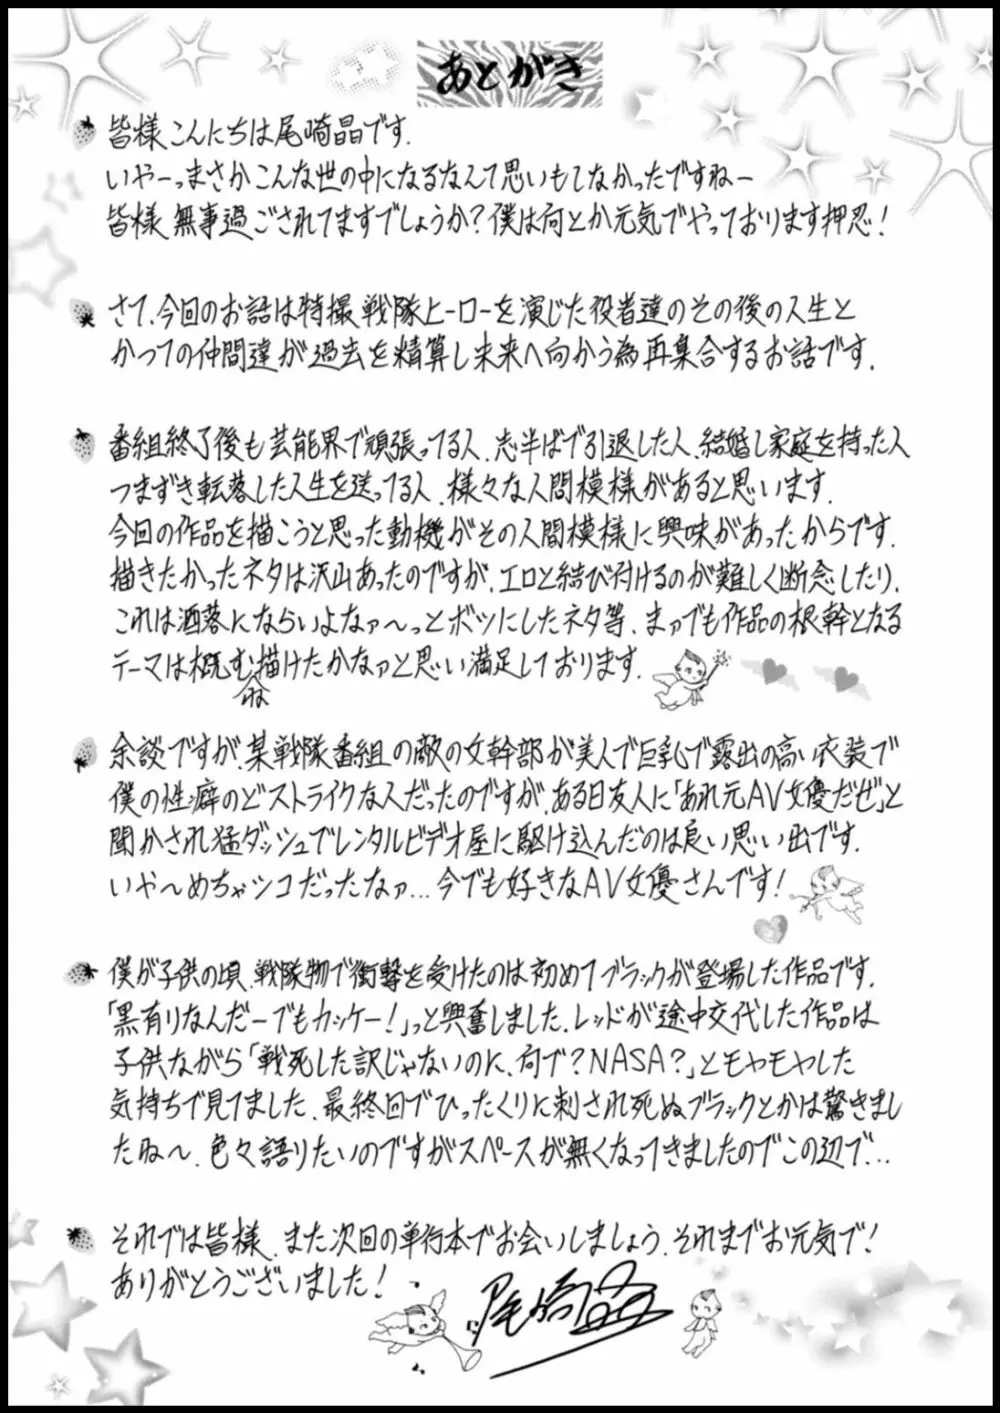 あとがき
皆様こんにちは尾崎晶です.
いやーっまさかこんな世の中になるなんて思いもしなかったですねー
皆様、無事過ごされてますでしょうか?僕は何とか元気でやっております押忍!
さて、今回のお話は特撮戦隊ヒーローを演じた役者達のその後の人生と
かつての仲間達が過去を精算し未来へ向かう為再集合するお話です.
番組終了後も芸能界で頑張ってる人、志半ばで引退した人、結婚し家庭を持った人
つまずき転落した人生を送ってる人、様々な人間模様があると思います.
今回の作品を描こうと思った動機がその人間模様に興味があったからです.
描きたかったネタは沢山あったのですが、エロと結び付けるのが難しく断念したり、
これは洒落にならいよなァ〜っとボツにしたネタ等、まァでも作品の根幹となる
テーマは概む描けたかなァと思い満足しております.
ね
余談ですが、某戦隊番組の敵の女幹部が美人で巨乳で露出の高い衣装で
僕の性癖のどストライクな人だったのですが、ある日友人に「あれ元AV女優だぜ」と
聞かされ猛ダッシュでレンタルビデオ屋に駆け込んだのは良い思い出です.
いや〜めちゃシコだったなァ...今でも好きなAV女優さんです!
僕が子供の頃、戦隊物で衝撃を受けたのは初めてブラックが登場した作品です.
「黒有りなんだーでもカッケー!」っと興奮しました、レッドが途中交代した作品は
子供ながら「戦死した訳じゃないのに、何で?NASA?」とモヤモヤした
気持ちで見てました、最終回でひったくりに刺され死ぬブラックとかは驚きまし
たね〜、色々語りたいのですがスペースが無くなってきましたのでこの辺で...
それでは皆様、また次回の単行本でお会いしましょう、それまでお元気で!
ありがとうございました!
尾崎晶